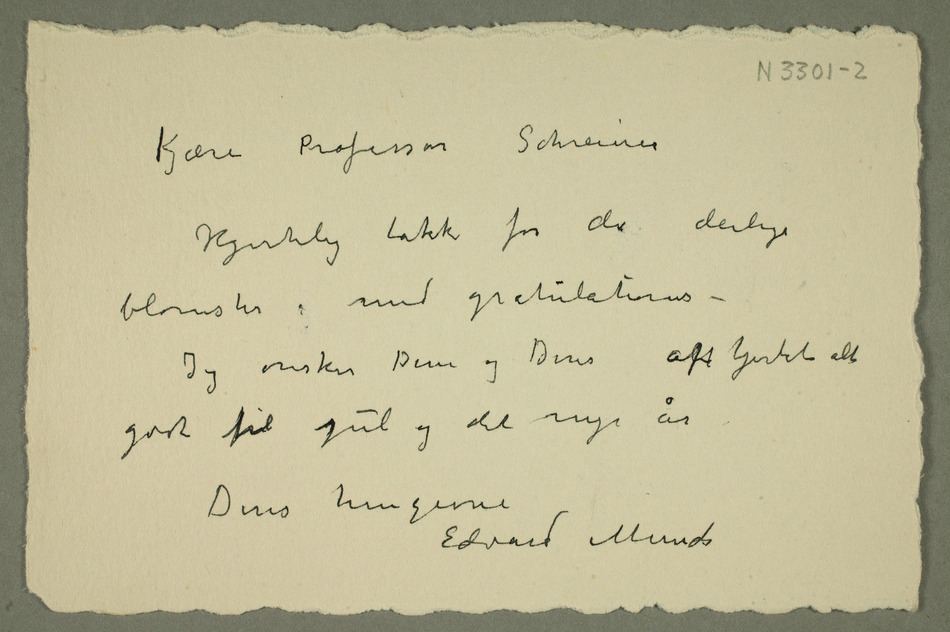 N 3301-2
Kjære Professor Schreiner
Hjertelig takk for de deilige
blomster: med gratulations –
Jeg ønsker Dem og Deres af hjertet alt
godt til jul og det nye år
Deres hengivne
Edvard Munch